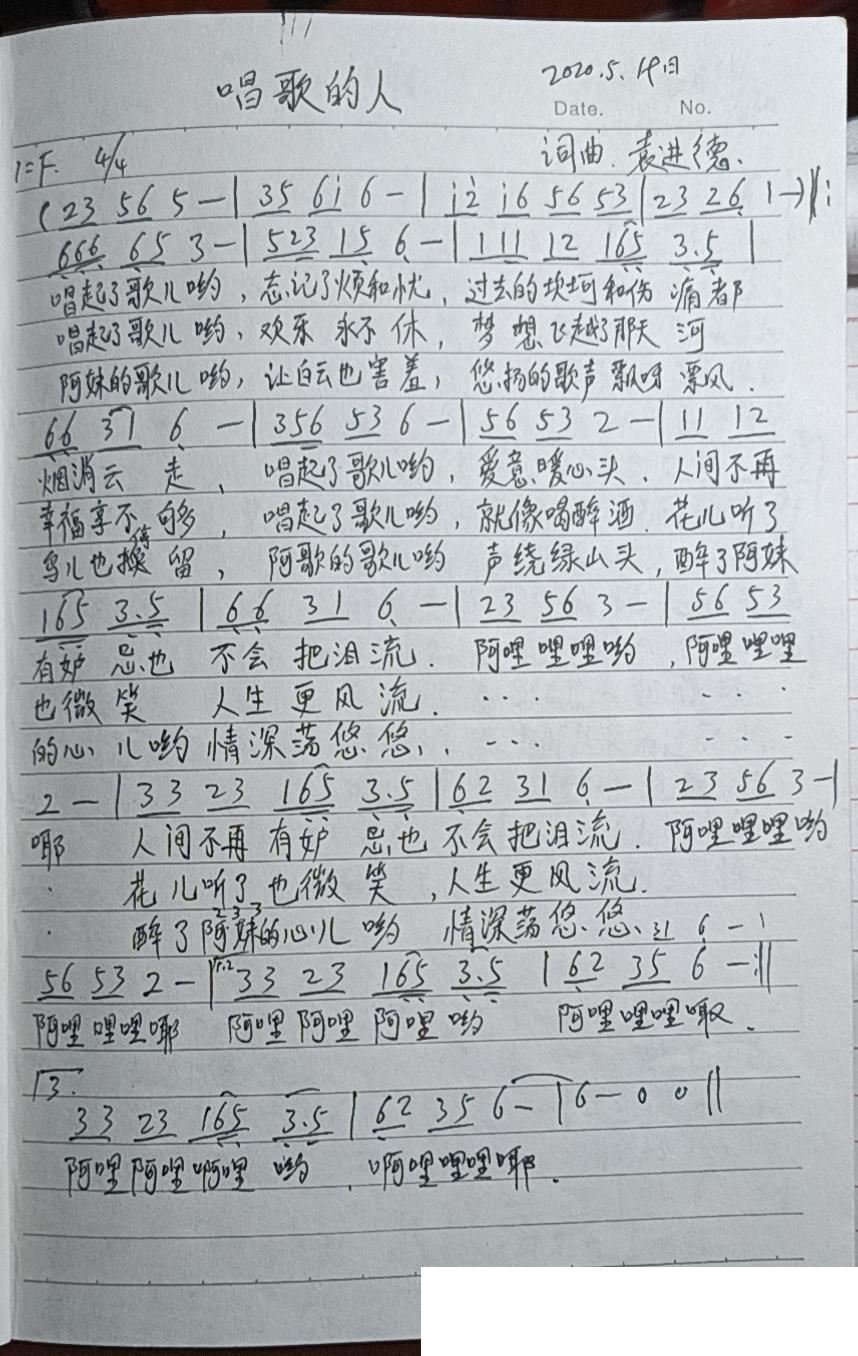 唱歌的人
2020.5.19日
Date. No.
1=F. 4/4 词曲.袁进德.
(23 56 5 — | 35 6i 6 — | i2 i6 56 53 | 23 26 1 — ) ‖:
666 65 3 — | 523 15 6 — | 111 12 165 3.5 |
唱起了歌儿哟，忘记了烦和忧，过去的坎坷和伤 痛都
唱起了歌儿哟，欢乐 永不休，梦想飞越了那天 河
阿妹的歌儿哟，让白云也害羞，悠扬的歌声飘呀 票风.
66 31 6 — | 356 53 6 — | 56 53 2 — | 11 12
烟消云 走，唱起了歌儿哟，爱意暖心头.人间不再
幸福享不够，唱起了歌儿哟，就像喝醉酒.花儿听了
鸟儿也 停留，阿歌的歌儿哟 声绕绿山头，醉了阿妹
165 3.5 | 66 31 6 — | 23 56 3 — | 56 53
有妒 忌也 不会 把泪流.阿哩哩哩哟，阿哩哩哩
也微 笑 人生更风流. . . . . . .
的心 儿哟 情深荡悠悠， . . . . . .
2 — | 33 23 165 3.5 | 62 31 6 — | 23 56 3 — |
耶 人间不再有妒 忌也 不会把泪流.阿哩哩哩哟
. 花儿听了也微 笑，人生更风流.
2 3 3
. 醉了阿妹的心儿 哟 情深荡悠悠、31 6 — |
56 53 2 — | 1.2 33 23 165 3.5 | 62 35 6 — :‖
阿哩哩哩耶 阿哩阿哩阿哩哟 阿哩哩哩耶.
3.
33 23 165 3.5 | 62 35 6 — | 6 — 0 0 ‖
阿哩阿哩啊哩 哟.啊哩哩哩耶.